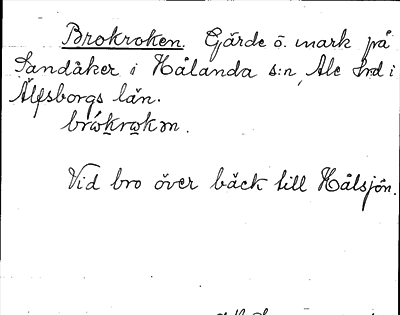 Brokroken. Gärde o. mark på
Sandåker i Hålanda s:n, Ale hrd i
Älfsborgs län.
Vid bro över bäck till Hålsjön.